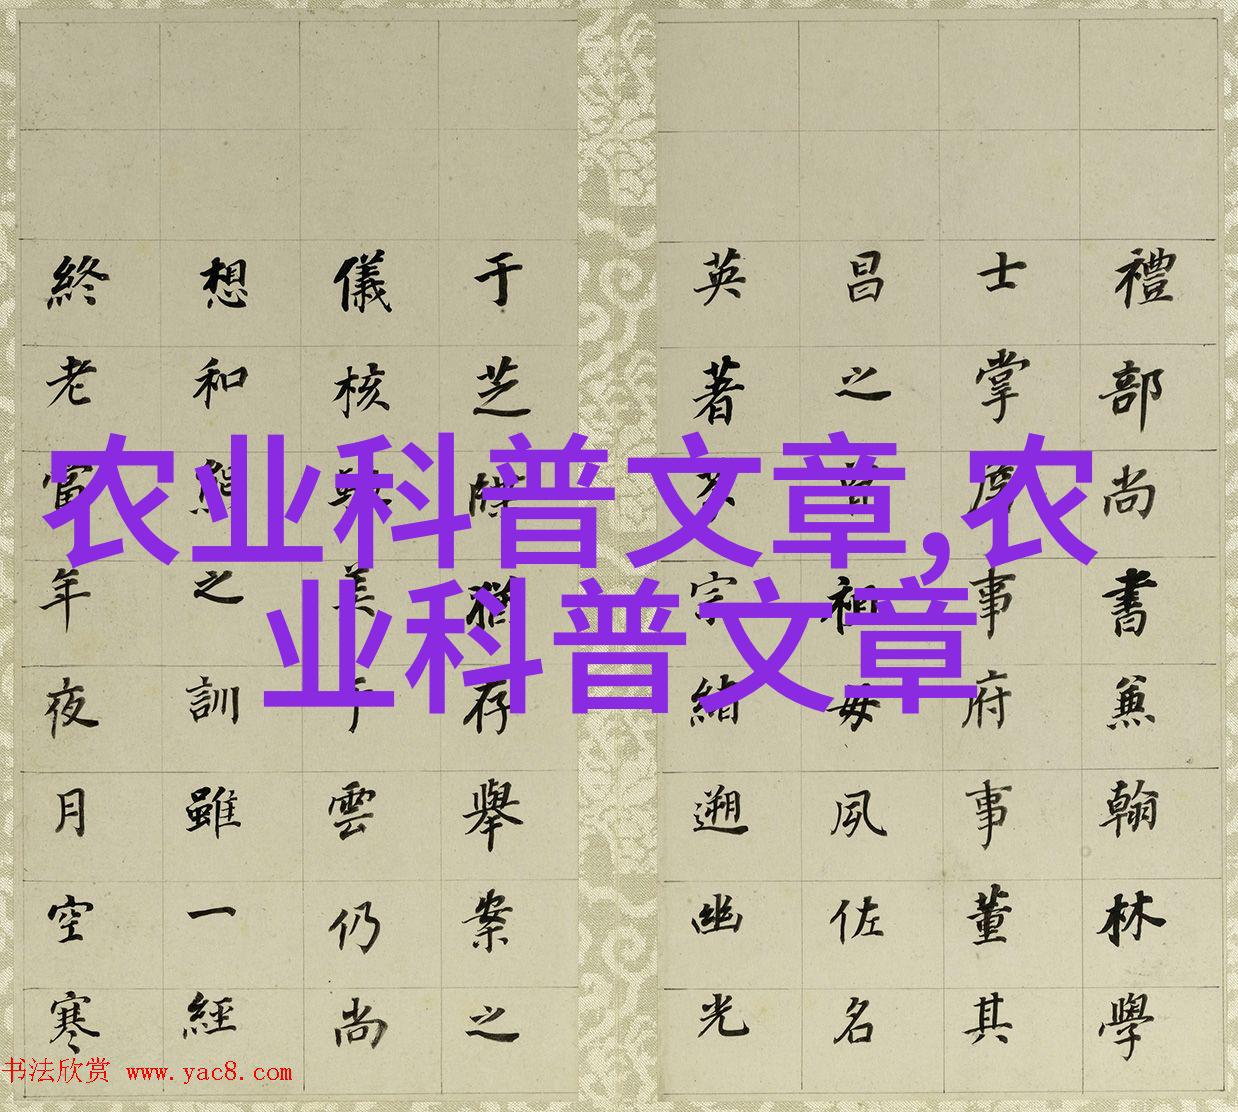 禮部尚書兼翰林學
士掌詹事府事董其
昌之曾祖母夙佐名
英著宗緒遡幽光
于芝牒猶存舉案之
儀核美雲仍尚
想和熊之訓雖一經
終老當年夜月空寒
农业科普文章,农
业科普文章
书法欣赏 www.yac8.com